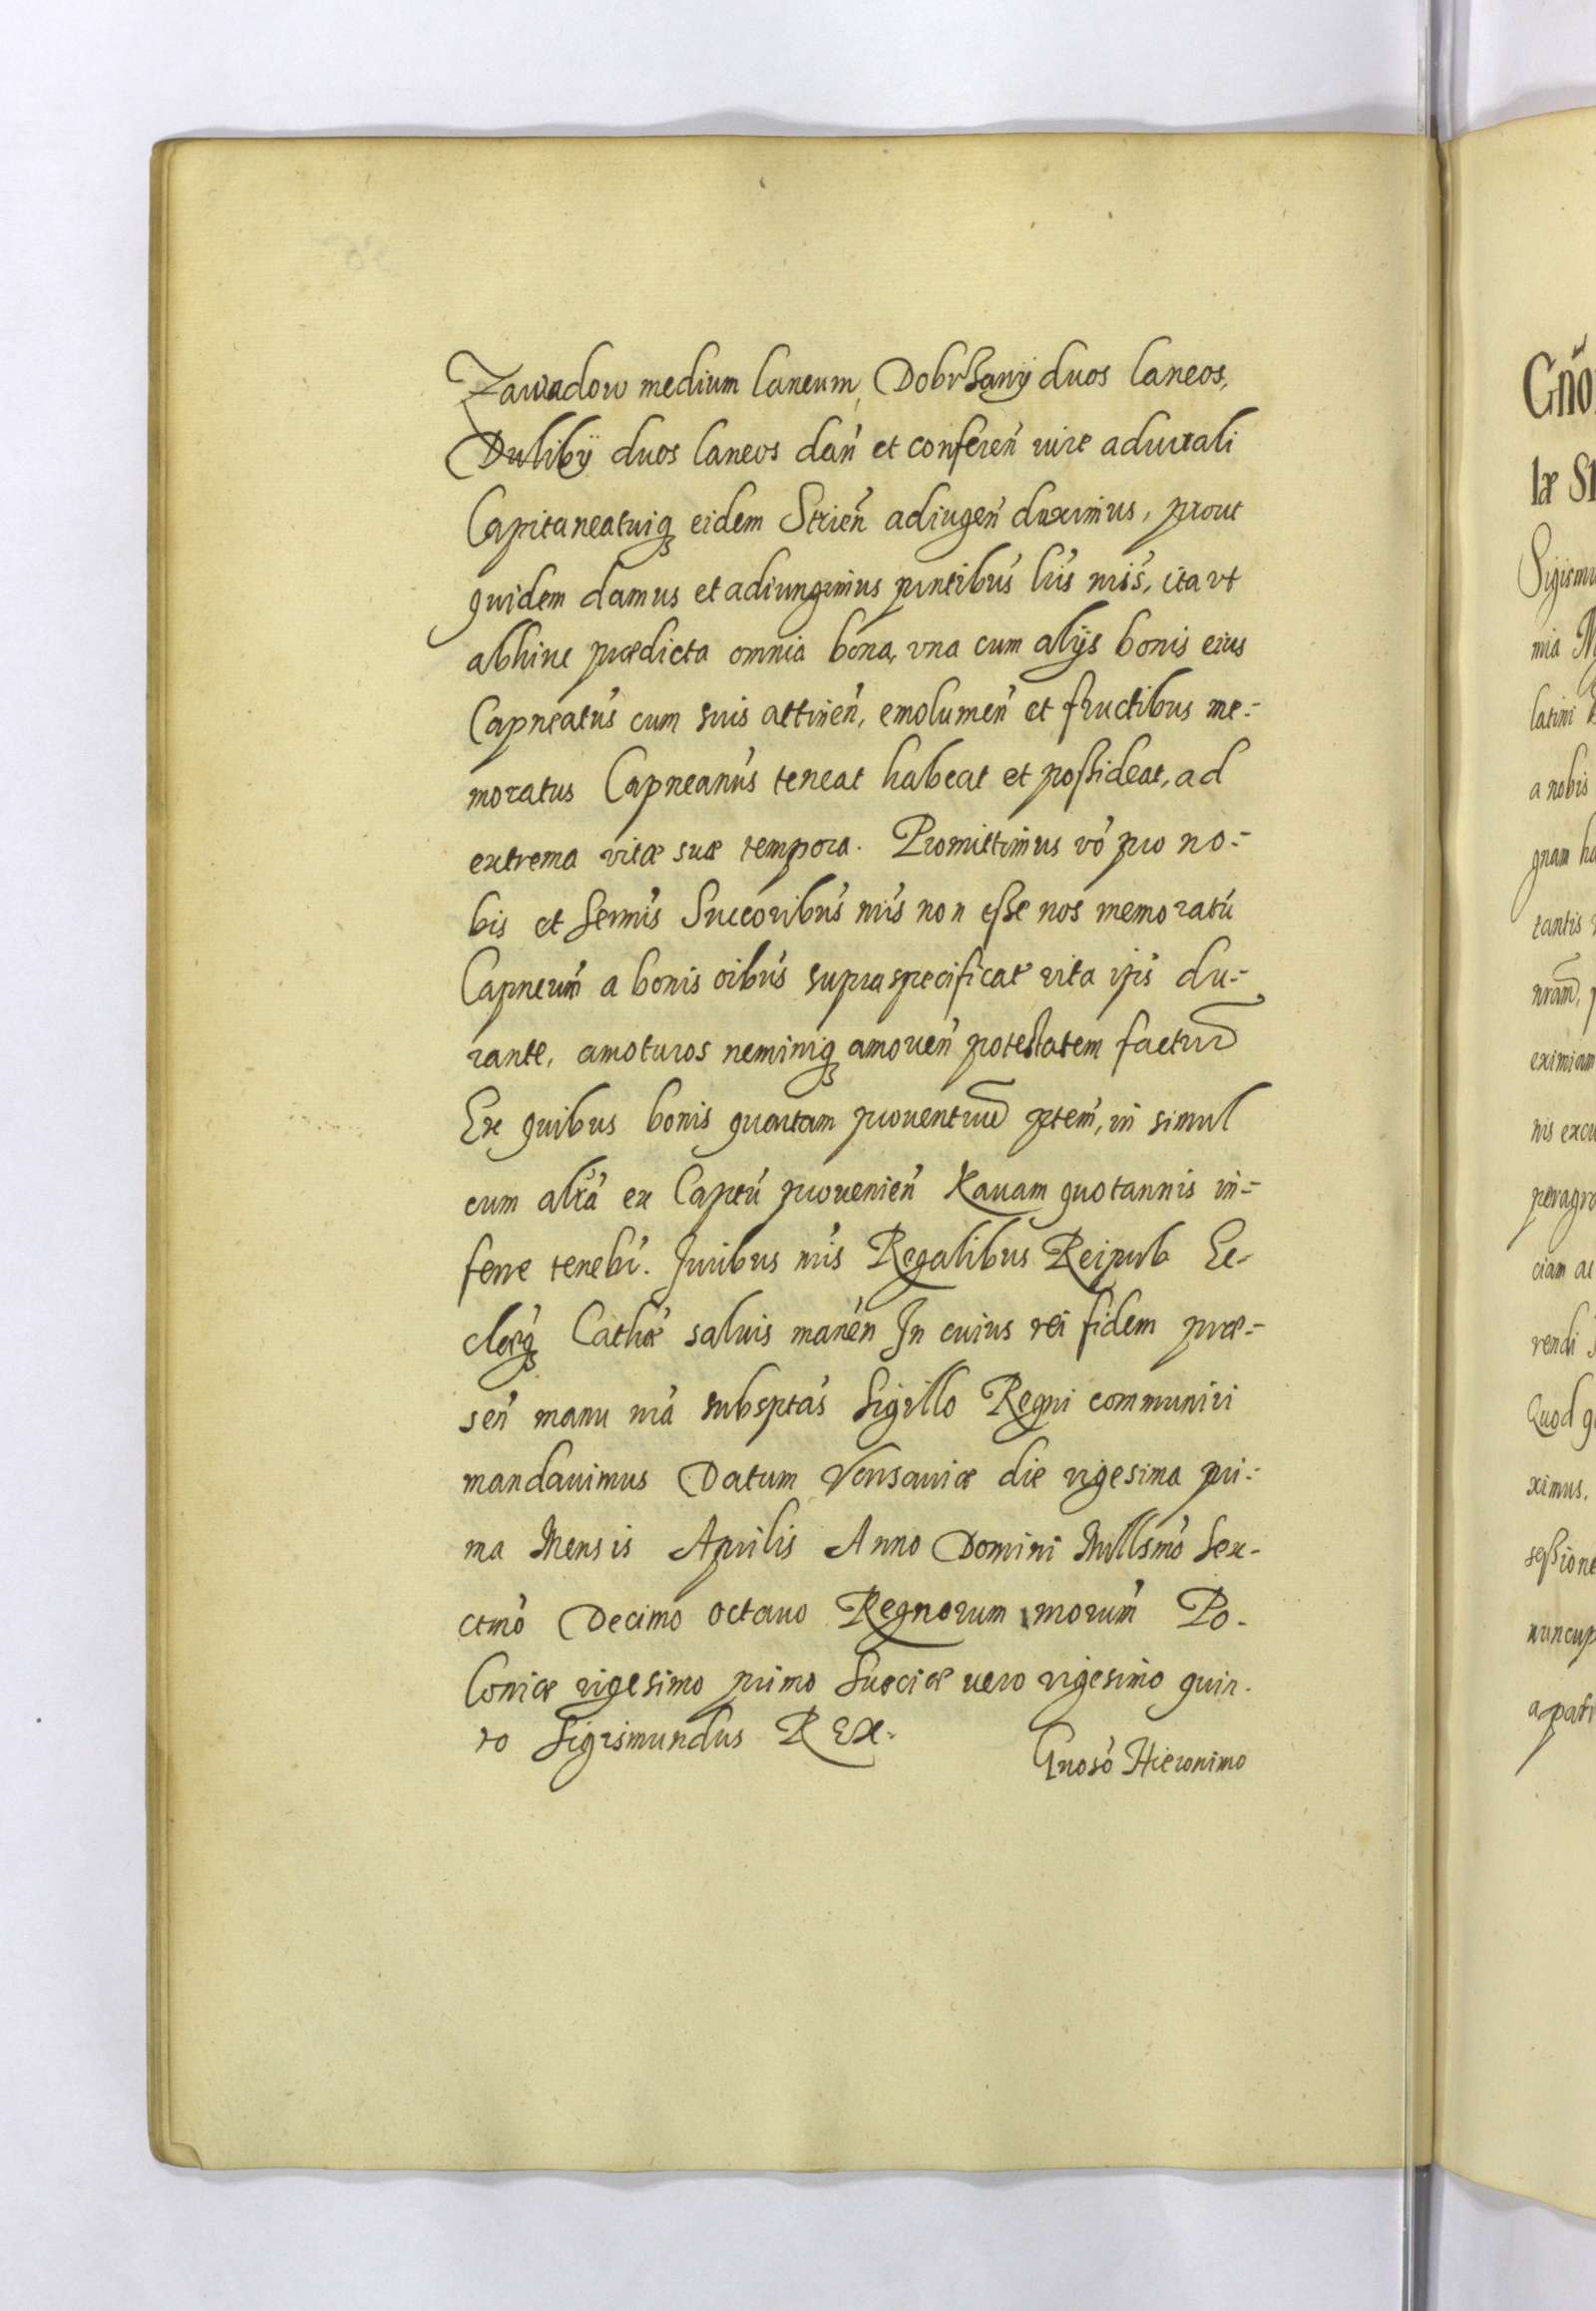 Zawadow medium laneum, Dobrhany duos laneos,
Dulibÿ duos laneos dan̄ et conferen̄ iure aduitali
Capitaneatuiq̨ eidem Strien̄ adiugen̄ duximus, prout
quidem damus et adiungimus pn̄tibus l̄ris n̄ris, ita vt
abhinc prædicta omnia bona, vna cum alijs bonis eius
Capneatūs cum suis attinen̄, emolumen̄ et fructibus me:=
moratus Capneanūs teneat habeat et possideat, ad
extrema vitæ suæ tempora. Promittimus vō pro no:=
bis et Sermīs Succoribūs n̄ris non esse nos memoratū
Capneum̄ a bonis oībus supraspecificat̄ vita ip̄is du:=
rante, amoturos neminiq̨ amouen̄ potestatem factur̄
Ex quibus bonis quartam prouentuū ptem̄, in simul
cum alr̄a ex Captū prouenien̄ Rauam quotannis in:=
ferre tenebr̄. Juribus n̄ris Regalibus Reipub Ec-
clæq̨ Cathǣ saluis manēn In cuius rei fidem præ:=
sen̄ manu n̄ra subsptās Sigillo Regni communiri
mandauimus Datum Varsauiæ die vigesima pri:=
ma Mensis Aprilis Anno Domini Millsmō Sex-
ctmō Decimo octauo Regnorum n̄rorum̄ Po-
loniæ vigesimo primo Sueciæ uero vigesimo quin-
to Sigismundus REX.
Gnosō Hieronimo
Gn̄o
læ
Sigismu
mia
latini
a nobis
gnam ha
tantis
nram̄,
eximiam
nis excu
peragra
ciam ac
rendi
Quod q
ximus.
sessione
nuncup
a pat